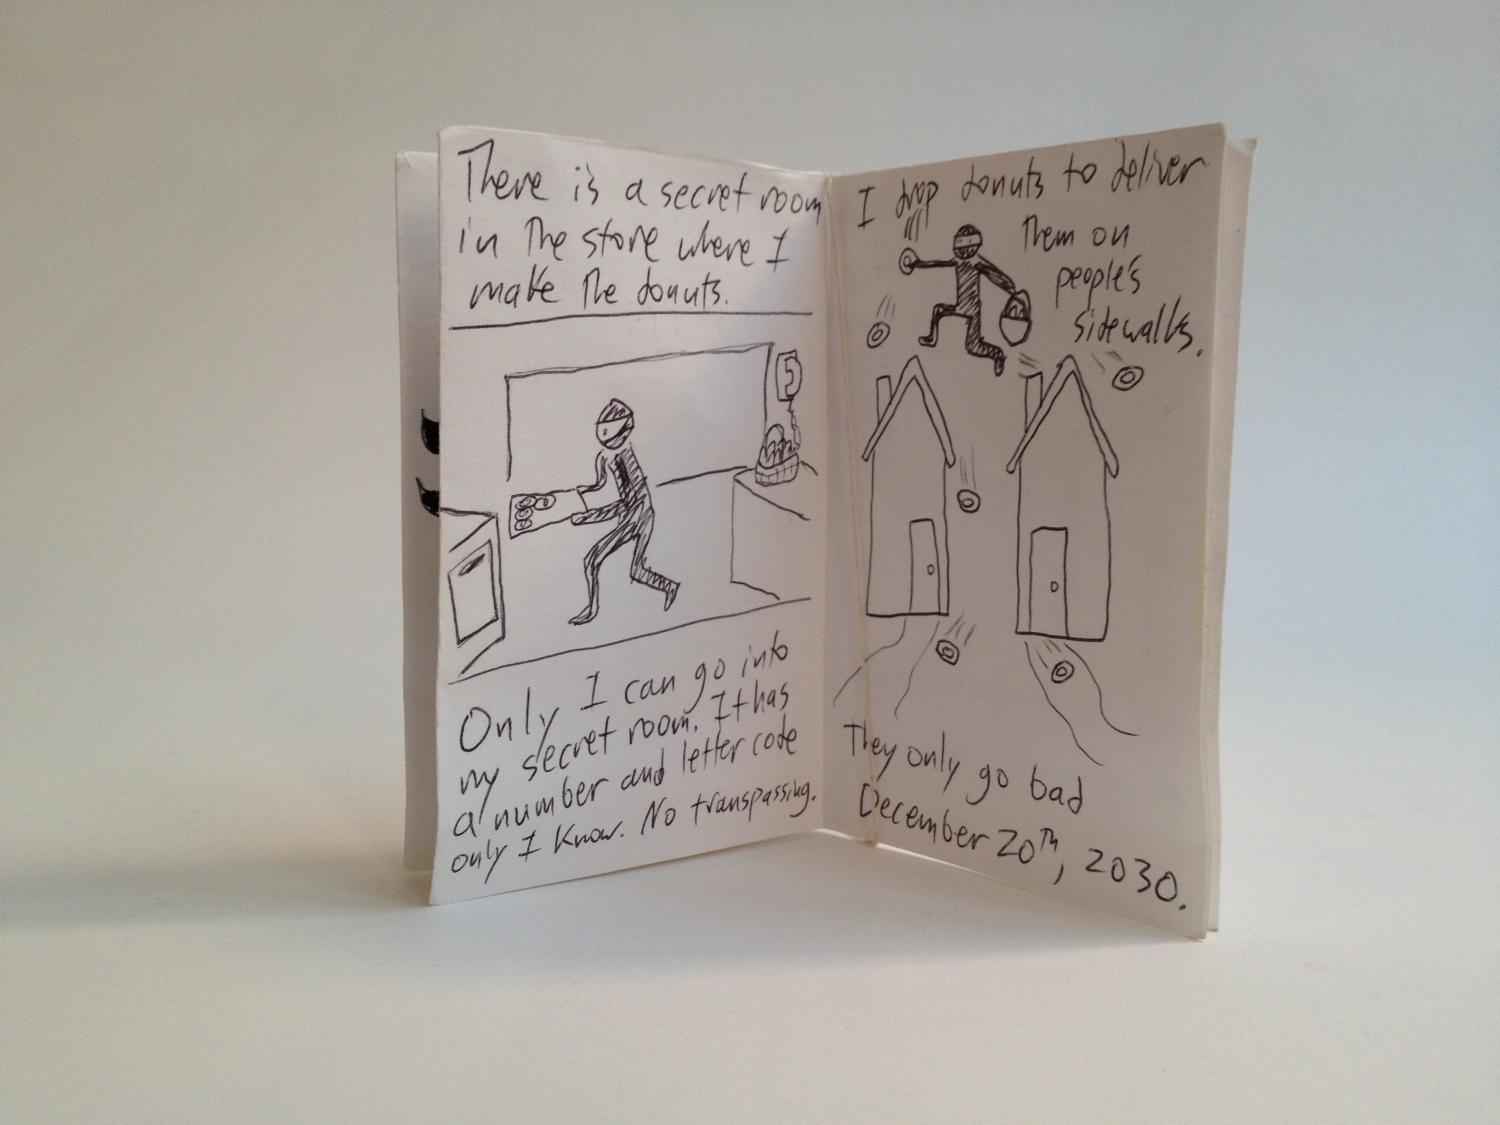 There is a secret room
in the store where I
make the donuts.
Only I can go into
my secret room. It has
a number and letter code
only I know. No transpassing.
I drop donuts to deliver
them on
people's
sidewalks.
They only go bad
December 20th, 2030.